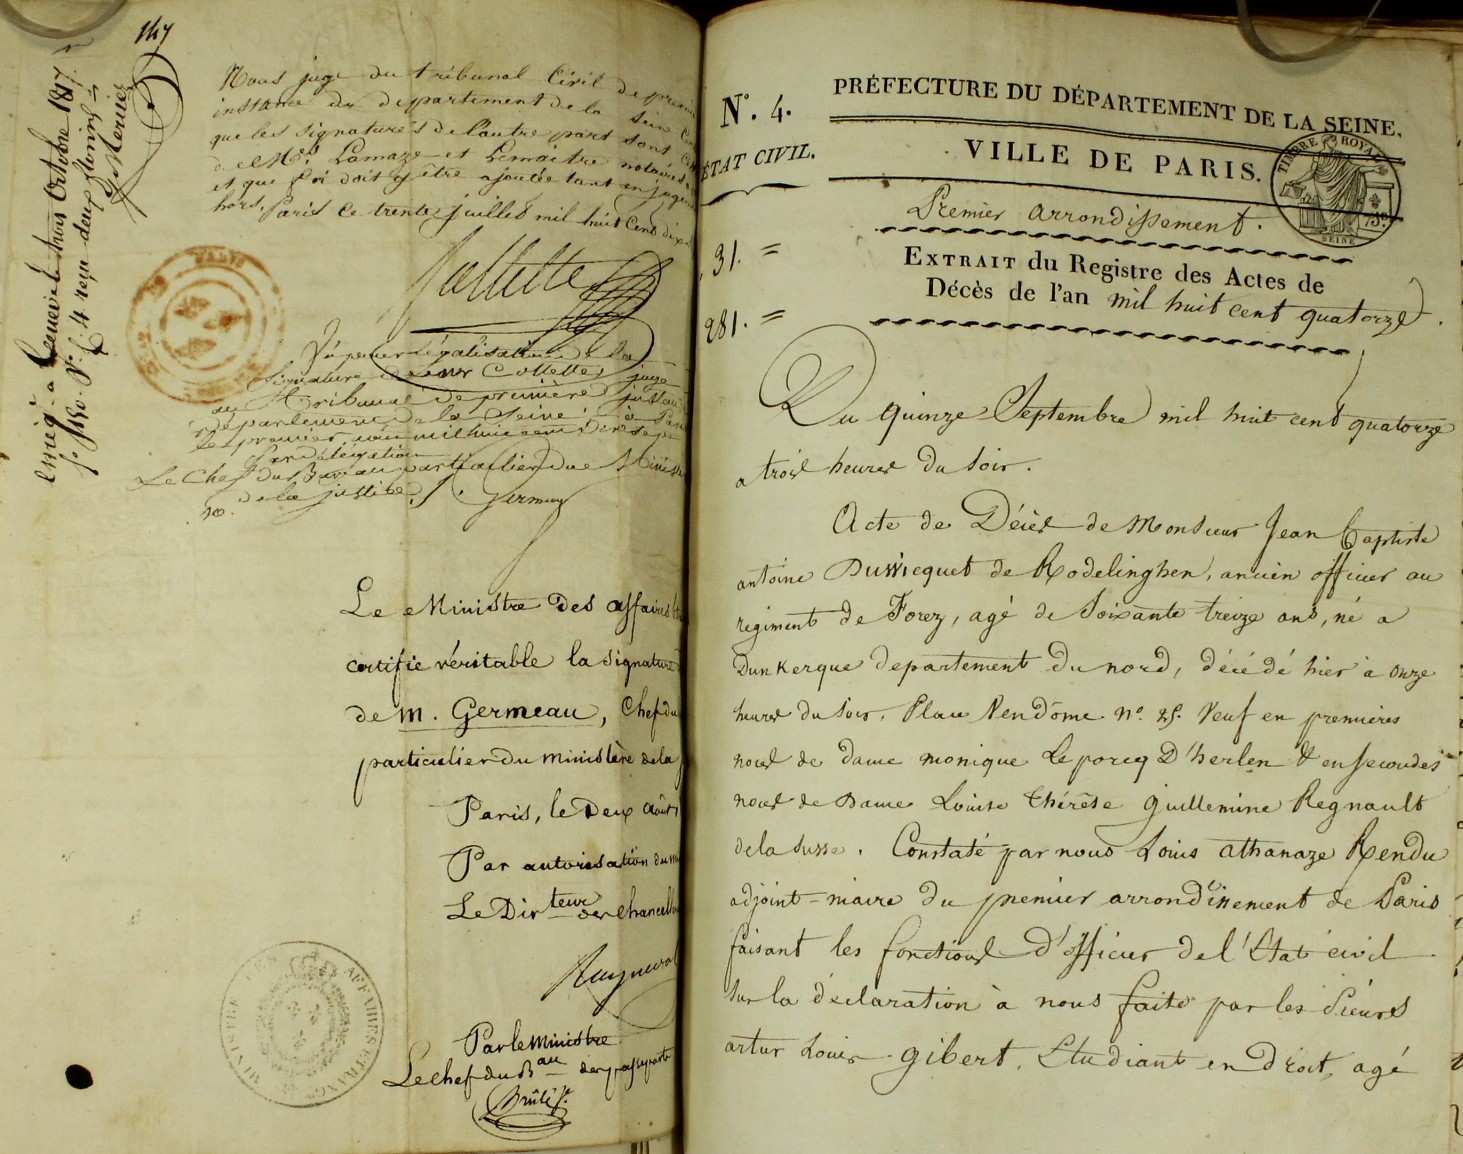 147
Nous juge du tribunal Civil de premi
instance du departement de la Seine
que les signatures de l'autre part sont
de Mes. Lamaze et Lemaitre notaires
et que foi doit y être ajoutée tant en jugem
hors, Paris le trente juillet mil huit Cent dix
Collette
Vu pour légalisation de la
signature de M. Collette, juge
au Tribunal de première Instan
département de la Seine à Paris
le premier août mil huit cent dix sept
Par délégation
Le Chef du Bureau particulier du Minist
de la justice,
Germeau
Le Ministre des affaires
certifie véritable la signature
de M. Germeau, Chef du
particulier du ministère de la
Paris, le Deux Août
Par autorisation du
Le Directeur des Chancell
Par le Ministre
Le Chef du Bau des passeports
Brulé
MINISTRE DES AFFAIRES ETRANG
octobre 1817
reçu deux florins
N°. 4.
ETAT CIVIL.
31. =
281. =
PRÉFECTURE DU DÉPARTEMENT DE LA SEINE,
VILLE DE PARIS.
TIMBRE ROYAL
SEINE
Premier arrondissement.
EXTRAIT du Registre des Actes de
Décès de l'an mil huit cent quatorze.
Du quinze Septembre mil huit cent quatorze
a trois heures du soir.
Acte de Décès de Monsieur Jean Baptiste
antoine Duwicquet de Rodelinghen, ancien officier au
regiment de Forez, agé de soixante treize ans, né a
Dunkerque departement du nord, décédé hier à onze
heures du soir, Place Vendôme n°. 25. Veuf en premières
noces de dame monique Leporcq D'herlen & en secondes
noces de Dame Louise thérèse guillemine Regnault
de la Susse. Constaté par nous Louis athanaze Rendu
adjoint-maire du premier arrondissement de Paris
faisant les fonctions d'officier de l'Etat civil
sur la déclaration à nous faite par les Sieurs
artur Louis gibert, Etudiant en Droit, agé